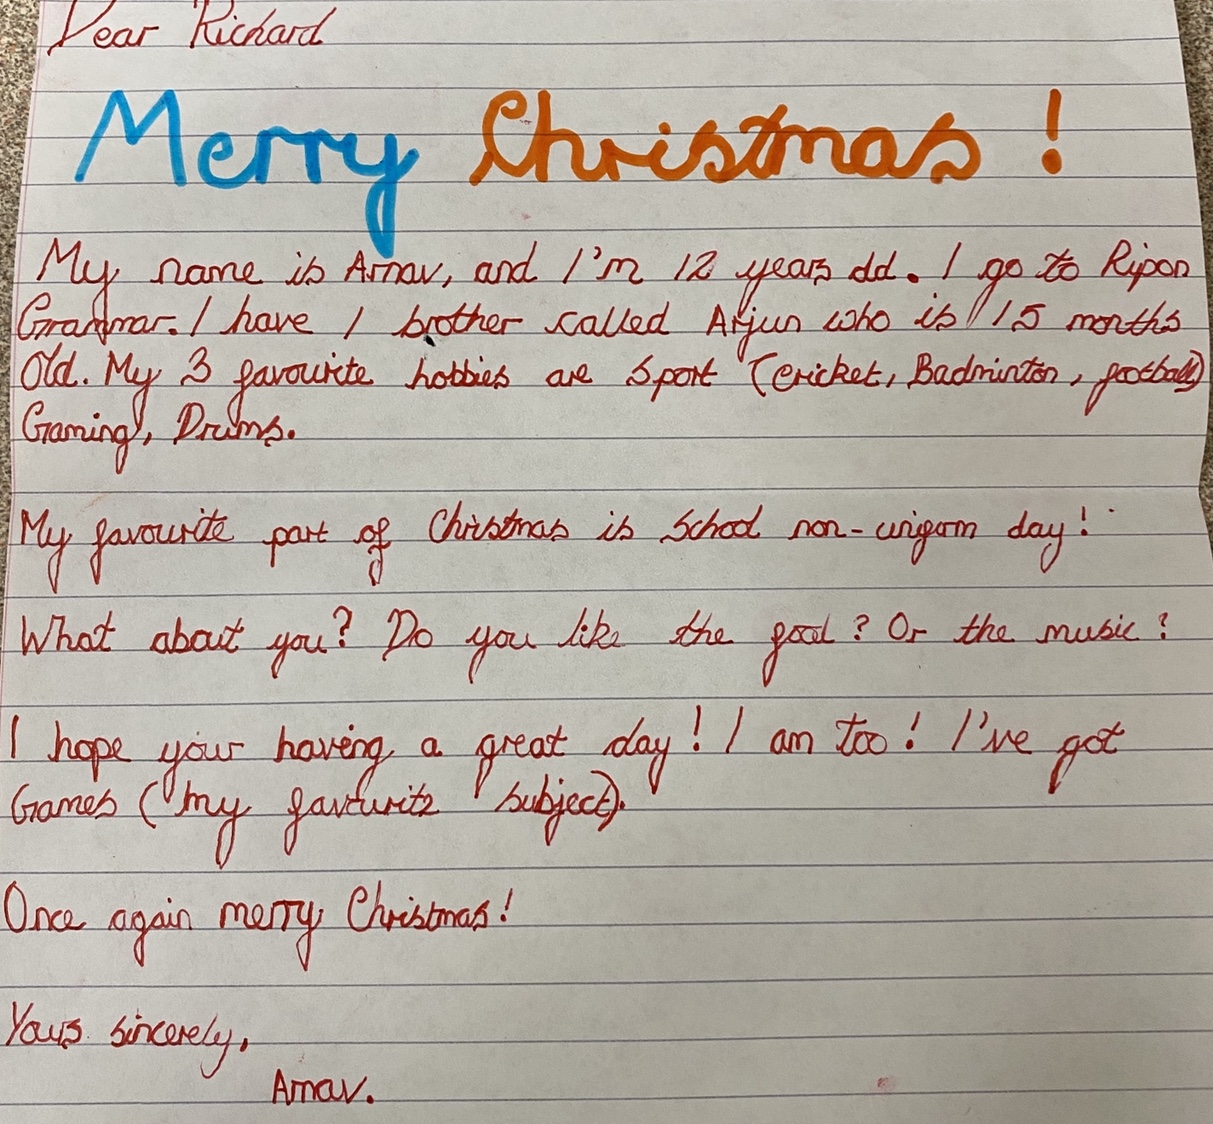 Dear Richard
Merry Christmas!
My name is Arnav, and I'm 12 years old. I go to Ripon
Grammar. I have 1 brother called Arjun who is 15 months
Old. My 3 favourite hobbies are Sport (Cricket, Badminton, football)
Gaming, Drums.
My favourite part of Christmas is School non-uniform day!
What about you? Do you like the food? Or the music?
I hope your having a great day! I am too! I've got
Games (my favourite subject).
Once again merry Christmas!
Yours sincerely,
Arnav.